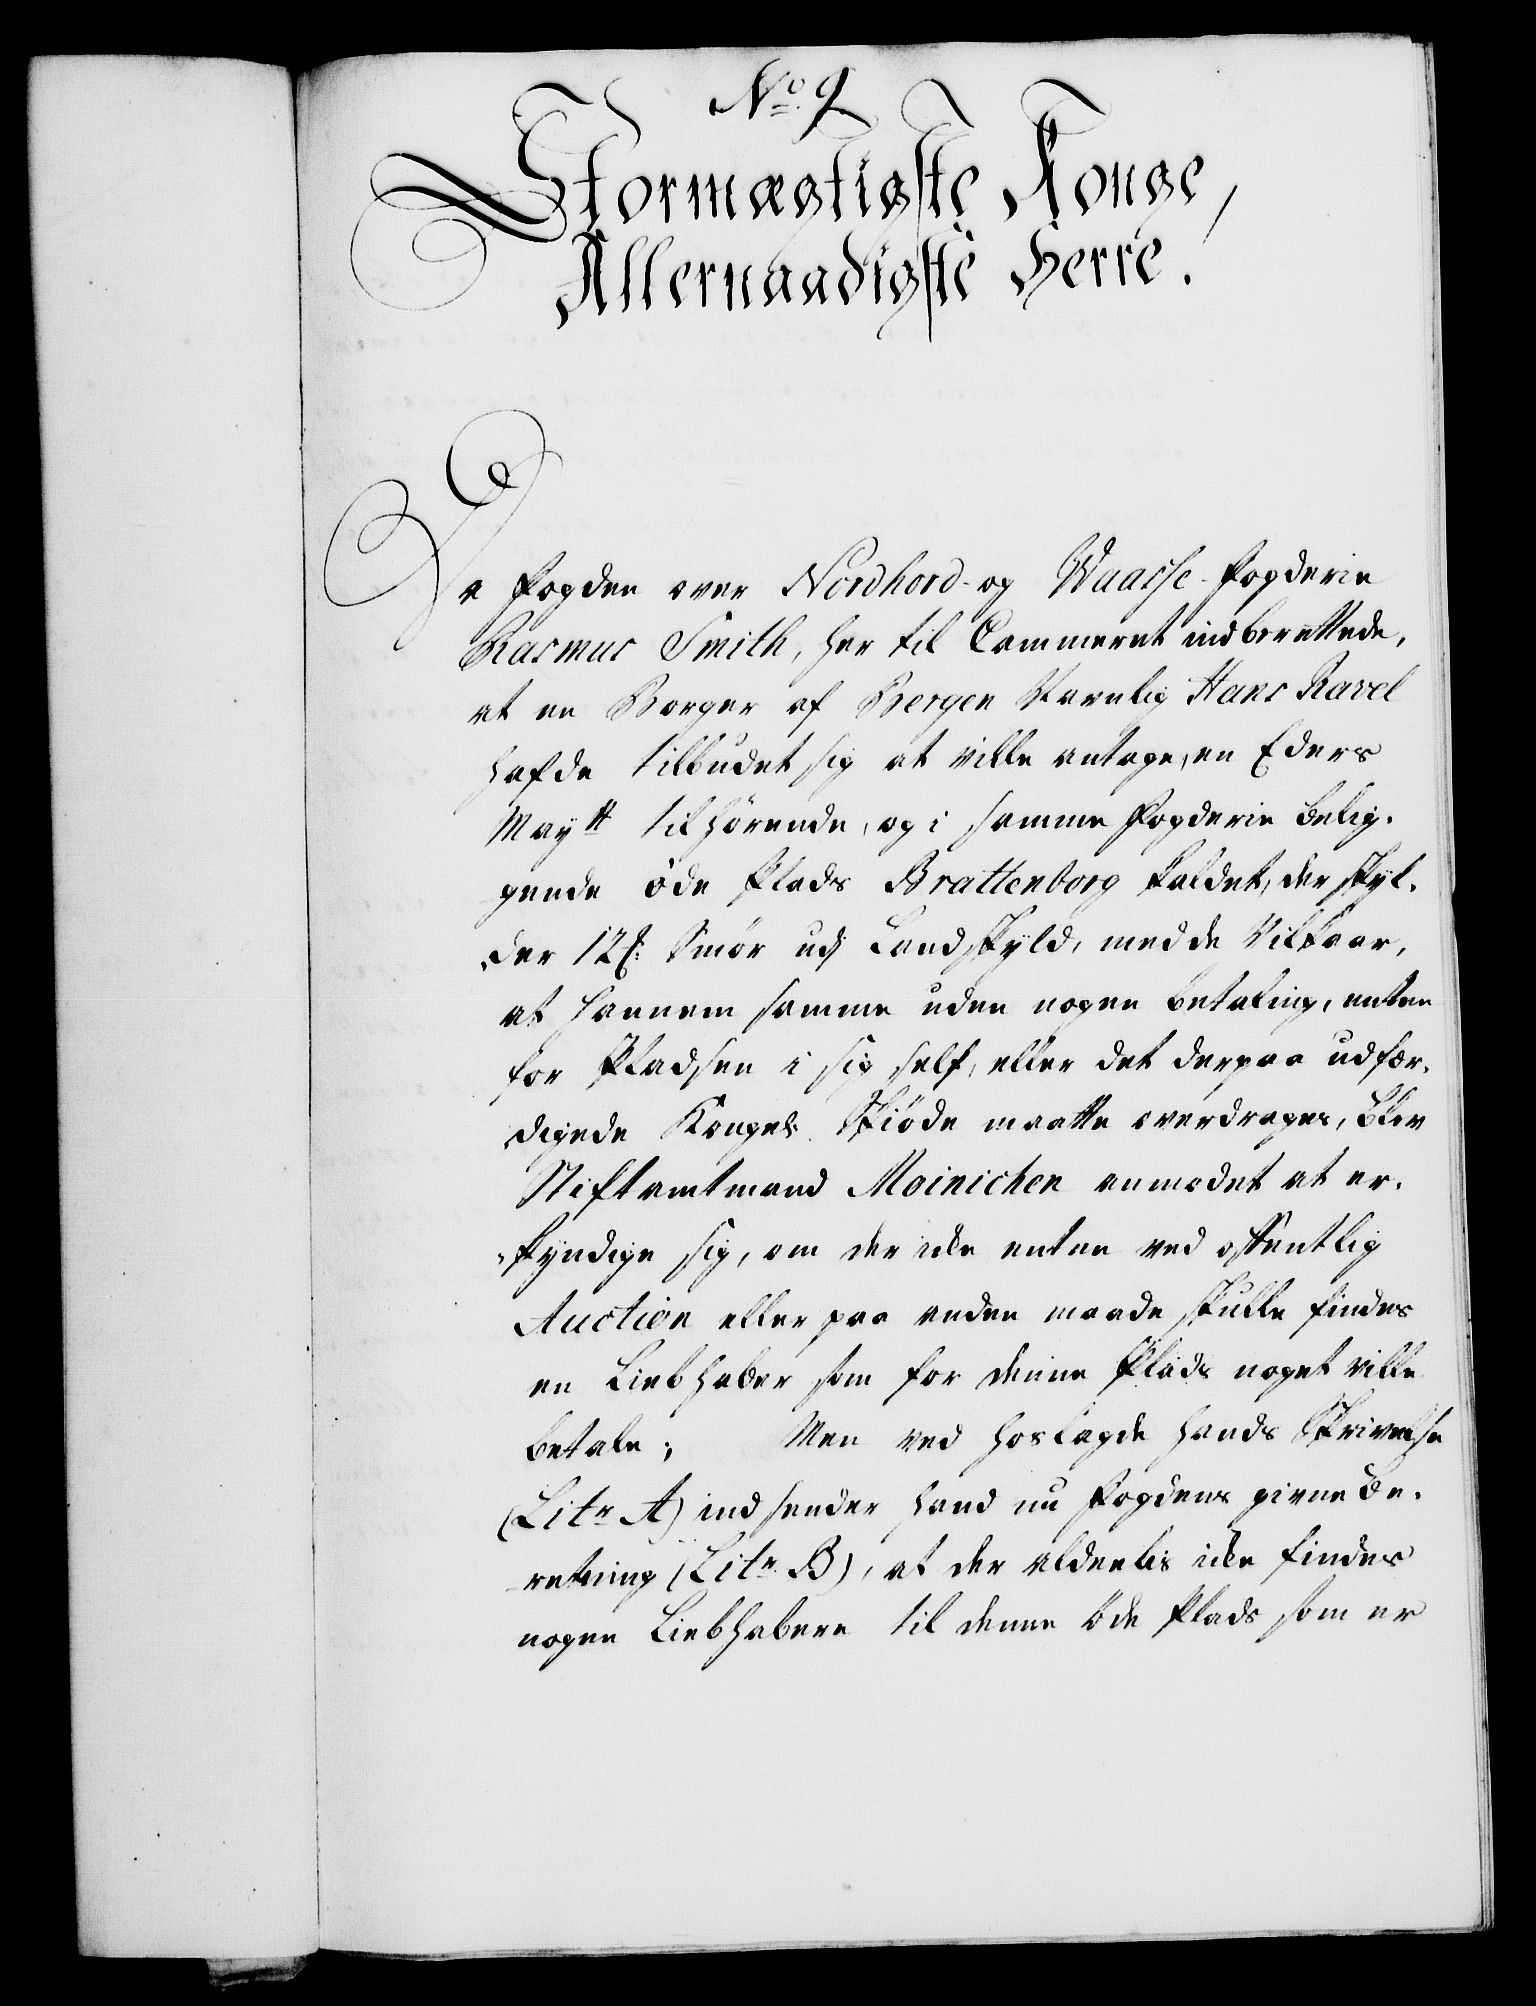 No. 9
Stormægtigste Konge,
Allernaadigste Herre!
Da Fogden over Nordhord- og Waasse-Fogderie
Rasmus Smith, her til Cammeret indberettede,
at en Borger af Bergen Navnlig Hans Ravel
hafde tilbudet sig at ville antage, en Eders
Maytt tilhørende, og i samme Fogderie belig-
gende öde Plads Brattenborg kaldet, der skyl-
der 12 Smør udj Landskyld, med de Vilkaar,
at hannem samme uden nogen betaling, enten
for Pladsen i sig self, eller det derpaa udfær-
digede Kongel: Skiøde maatte overdrages, blev
Stiftamtmand Moinichen anmodet at er-
kyndige sig, om der icke enten ved offentlig
Auction eller paa anden maade skulle findes
en Liebhaber som for denne Plads noget ville
betale; Men ved hoslagde hands Skrivelse
(Litr A) indsender hand nu Fogdens givne Be-
retning (Litr. B), at der aldeelis icke findes
nogen Liebhabere til denne öde Plads som er